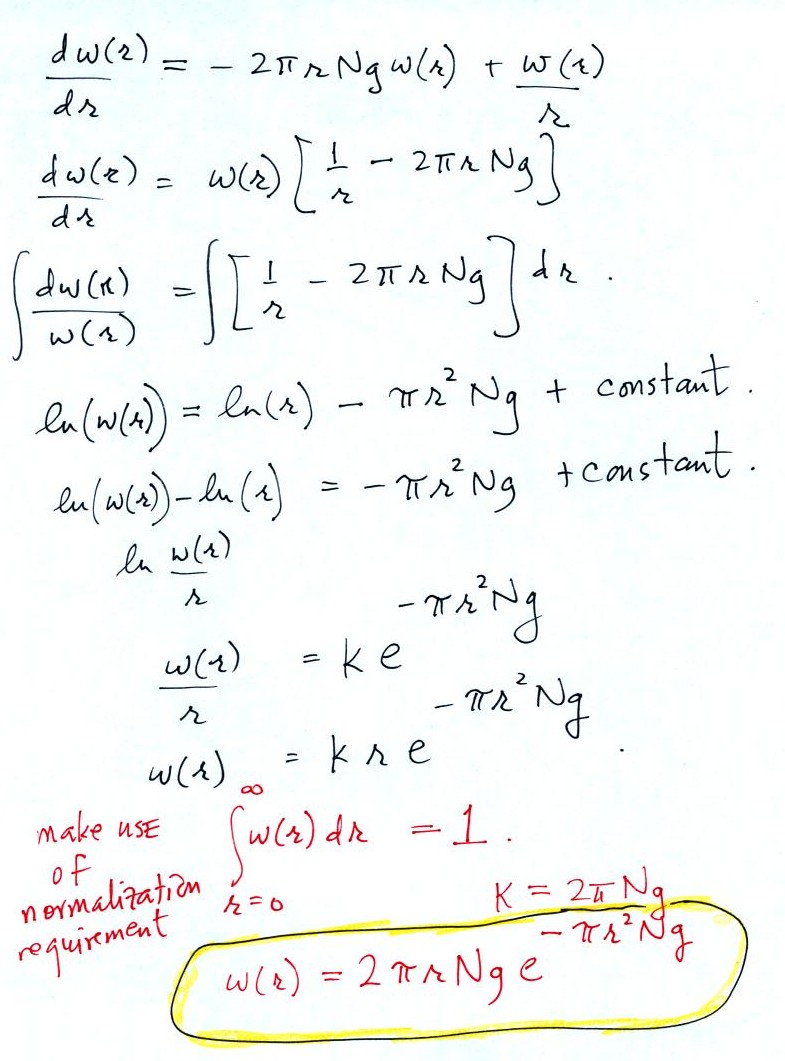 dw(r)/dr = - 2πr Ng w(r) + w(r)/r
dw(r)/dr = w(r) [ 1/r - 2πr Ng ]
∫ dw(r)/w(r) = ∫ [ 1/r - 2πr Ng ] dr .
ln(w(r)) = ln(r) - πr² Ng + constant .
ln(w(r)) - ln(r) = - πr² Ng + constant .
ln w(r)/r
w(r)/r = k e^(-πr² Ng)
w(r) = k r e^(-πr² Ng) .
make use of normalization requirement
∫_{r=0}^{∞} w(r) dr = 1 .
K = 2π Ng
w(r) = 2πr Ng e^(-πr² Ng)